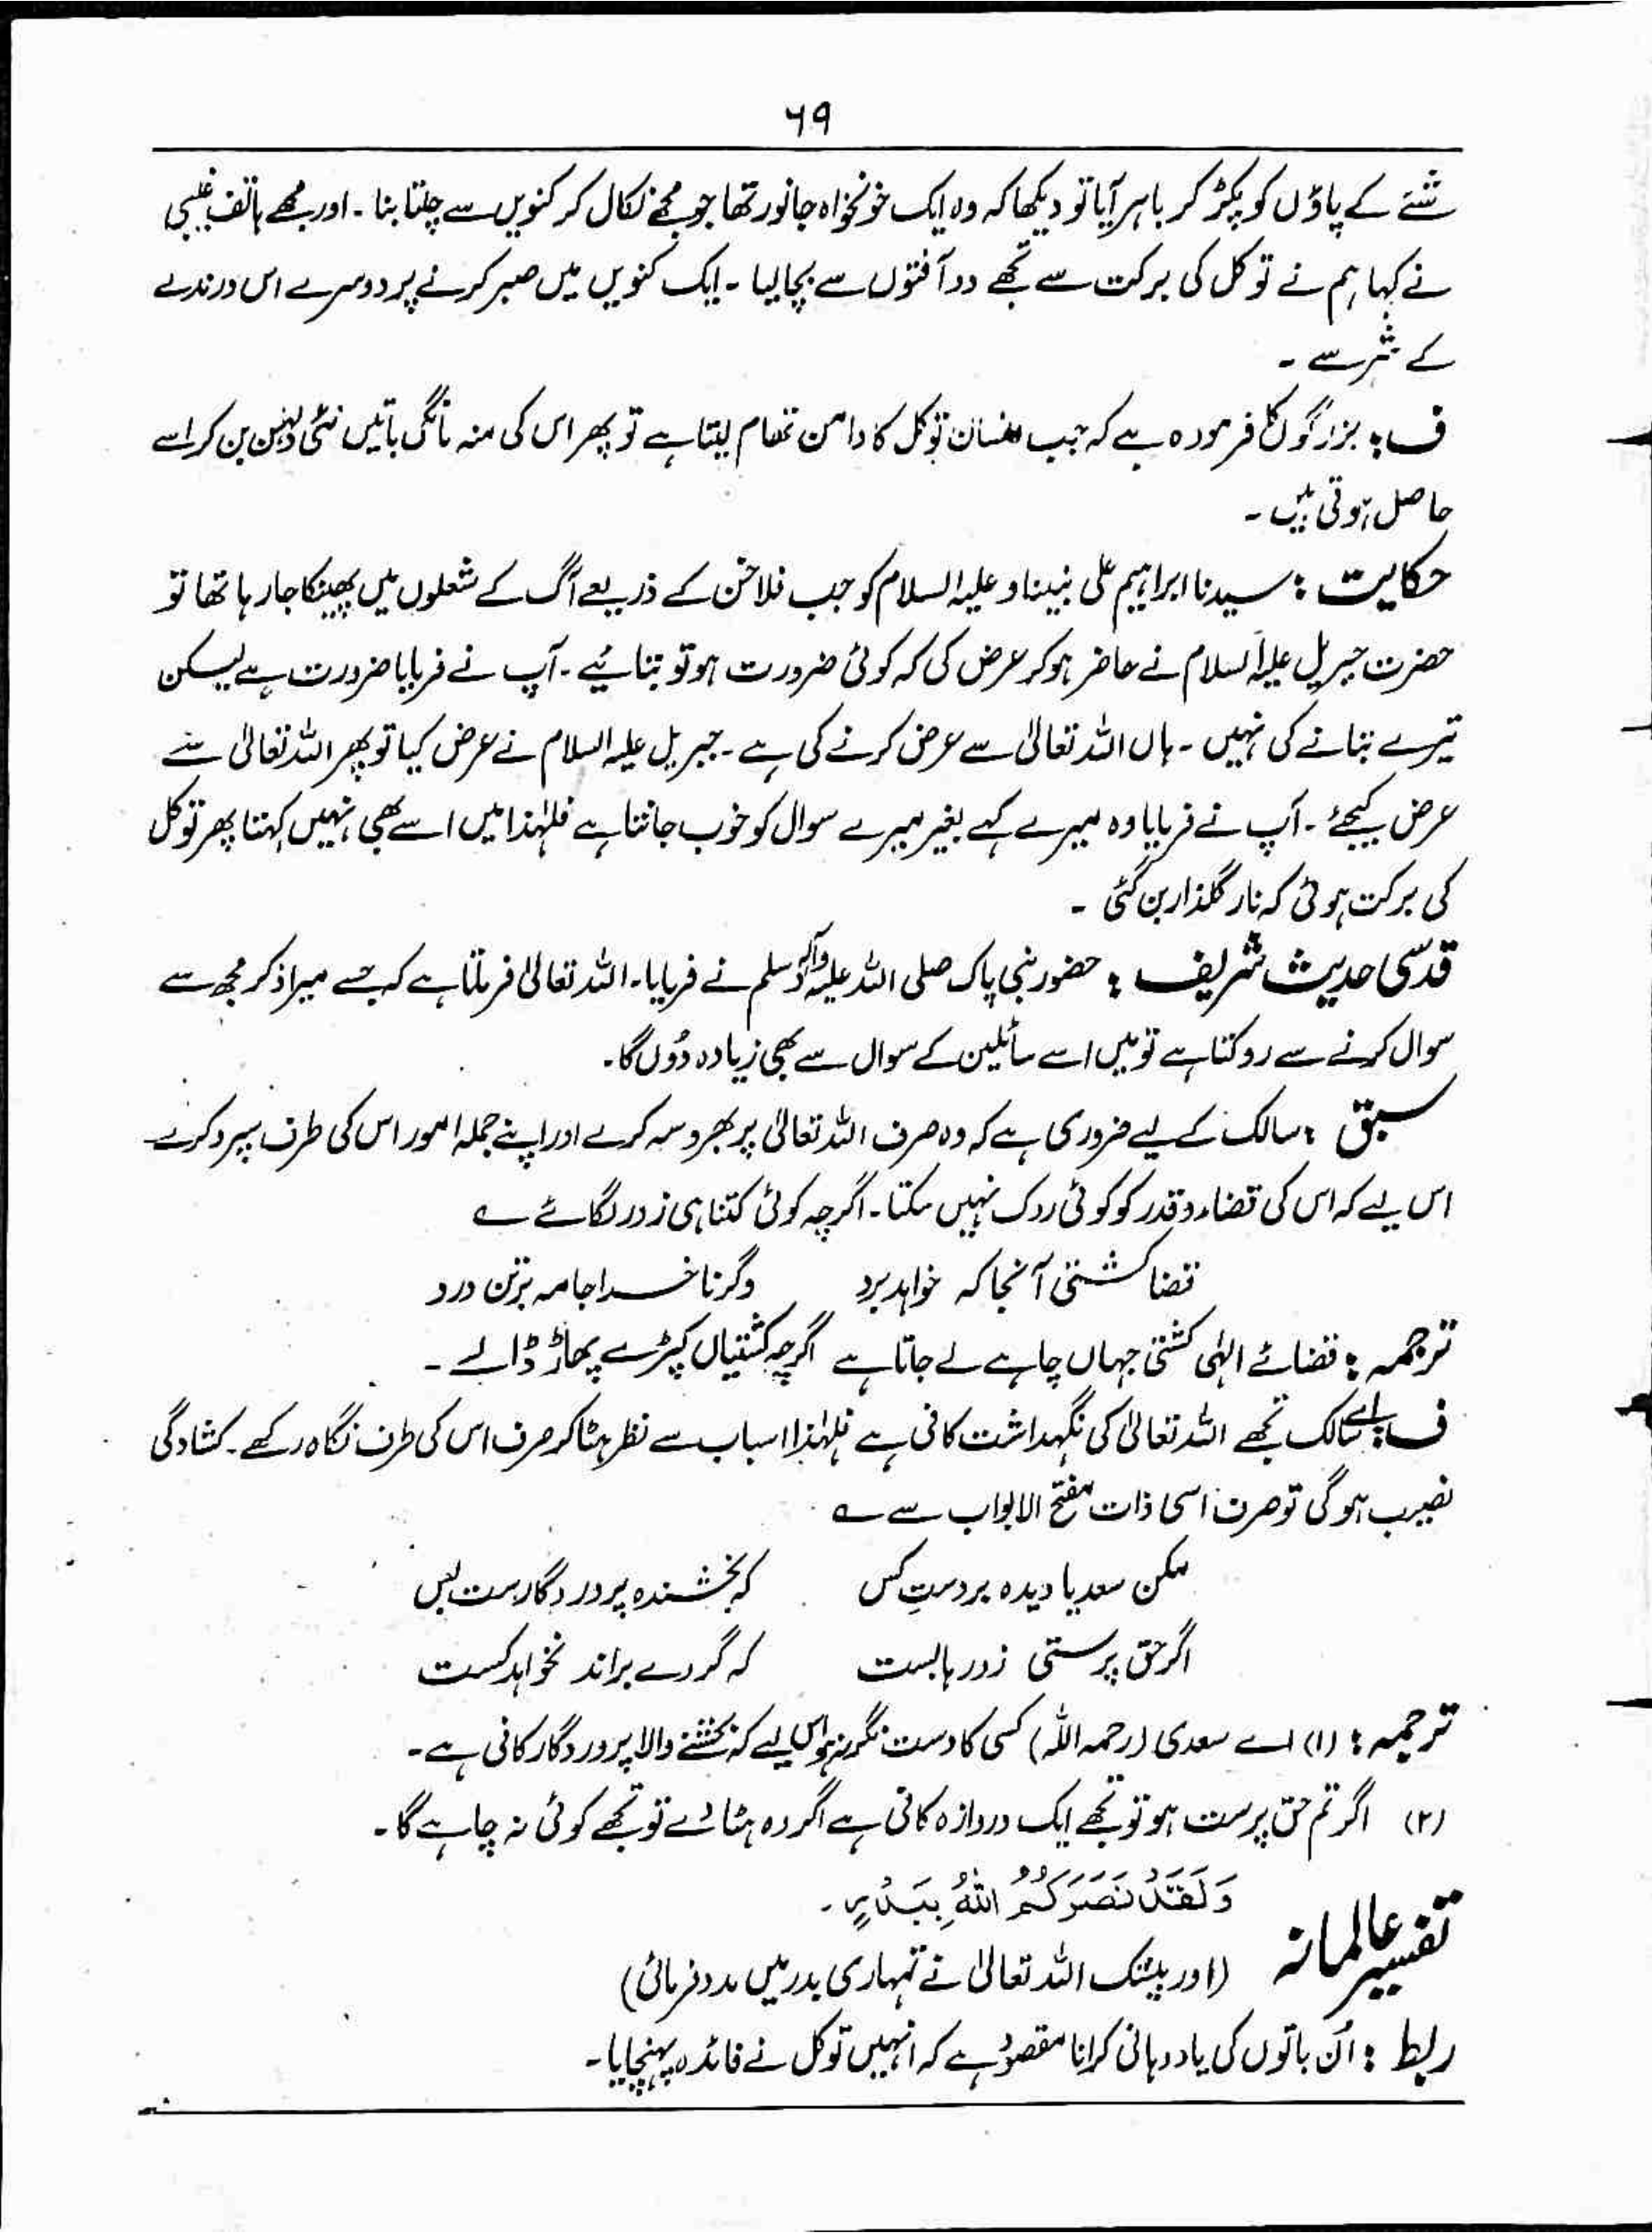 ۶۹
شئے کے پاؤں کو پکڑ کر باہر آیا تو دیکھا کہ وہ ایک خونخواہ جانور تھا جو مجھے نکال کر کنویں سے چلتا بنا ۔ اور مجھے ہاتف غیبی
نے کہا ہم نے توکل کی برکت سے تجھے دو آفتوں سے بچا لیا ۔ ایک کنویں میں صبر کرنے پر دوسرے اس درندے
کے شر سے ۔
ف : بزرگوں کا فرمودہ ہے کہ جب انسان توکل کا دامن تھام لیتا ہے تو پھر اس کی منہ مانگی باتیں نئی دلہن بن کر اسے
حاصل ہوتی ہیں ۔
حکایت : سیدنا ابراہیم علی نبینا و علیہ السلام کو جب فلاخن کے ذریعے آگ کے شعلوں میں پھینکا جا رہا تھا تو
حضرت جبریل علیہ السلام نے حاضر ہو کر عرض کی کہ کوئی ضرورت ہو تو بتائیے ۔ آپ نے فرمایا ضرورت ہے لیکن
تیرے بتانے کی نہیں ۔ ہاں اللہ تعالیٰ سے عرض کرنے کی ہے ۔ جبریل علیہ السلام نے عرض کیا تو پھر اللہ تعالیٰ سے
عرض کیجئے ۔ آپ نے فرمایا وہ میرے کہے بغیر میرے سوال کو خوب جانتا ہے فلہٰذا میں اسے بھی نہیں کہتا پھر توکل
کی برکت ہوئی کہ نار گلذار بن گئی ۔
قدسی حدیث شریف : حضور نبی پاک صلی اللہ علیہ وآلہ وسلم نے فرمایا ۔ اللہ تعالیٰ فرماتا ہے کہ جسے میرا ذکر مجھ سے
سوال کرنے سے روکتا ہے تو میں اسے سائلین کے سوال سے بھی زیادہ دُوں گا ۔
سبق : سالک کے لیے ضروری ہے کہ وہ صرف اللہ تعالیٰ پر بھروسہ کرے اور اپنے جملہ امور اس کی طرف سپرد کرے
اس لیے کہ اس کی قضاء و قدر کو کوئی روک نہیں سکتا ۔ اگرچہ کوئی کتنا ہی زور لگائے ؎
قضا کشتی آنجا کہ خواہد برد وگر ناخدا جامہ برتن درد
ترجمہ : قضائے الٰہی کشتی جہاں چاہے لے جاتا ہے اگرچہ کشتیاں کپڑے پھاڑ ڈالے ۔
ف : اے سالک تجھے اللہ تعالیٰ کی نگہداشت کافی ہے فلہٰذا اسباب سے نظر ہٹا کر صرف اس کی طرف نگاہ رکھے ۔ کشادگی
نصیب ہوگی تو صرف اسی ذات مفتح الابواب سے ؎
مکن سعدیا دیدہ بردستِ کس کہ بخشندہ پروردگارست بس
اگر حق پرستی زدرہا بست کہ گر دے براند نخواہد کست
ترجمہ : (۱) اے سعدی (رحمہ اللہ) کسی کا دست نگر نہ ہو اس لیے کہ بخشنے والا پروردگار کافی ہے ۔
(۲) اگر تم حق پرست ہو تو تجھے ایک دروازہ کافی ہے اگر وہ ہٹا دے تو تجھے کوئی نہ چاہے گا ۔
وَلَقَدْ نَصَرَكُمُ اللّٰهُ بِبَدْرٍ ۔
تفسیر عالمانہ
(اور بیشک اللہ تعالیٰ نے تمہاری بدر میں مدد فرمائی)
ربط : اُن باتوں کی یاد دہانی کرانا مقصود ہے کہ انہیں توکل نے فائدہ پہنچایا ۔